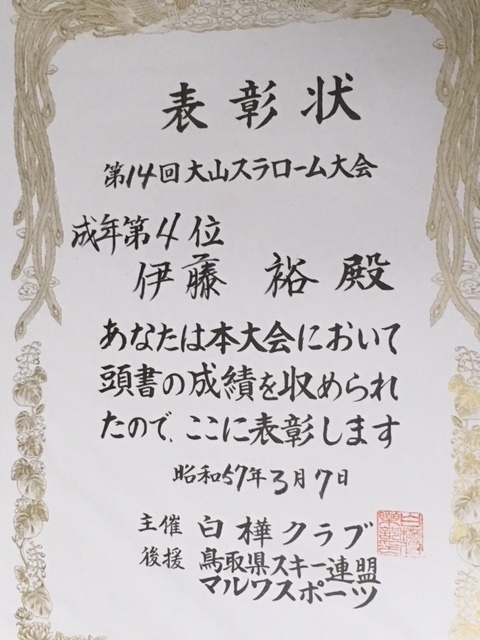 表彰状
第14回大山スラローム大会
成年第4位
伊藤 裕殿
あなたは本大会において
頭書の成績を収められ
たので、ここに表彰します
昭和57年3月7日
主催 白樺クラブ
後援 鳥取県スキー連盟
マルワスポーツ